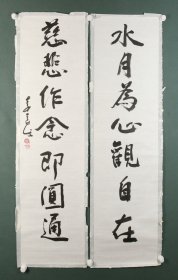 水月為心觀自在
慈悲作念即圓通